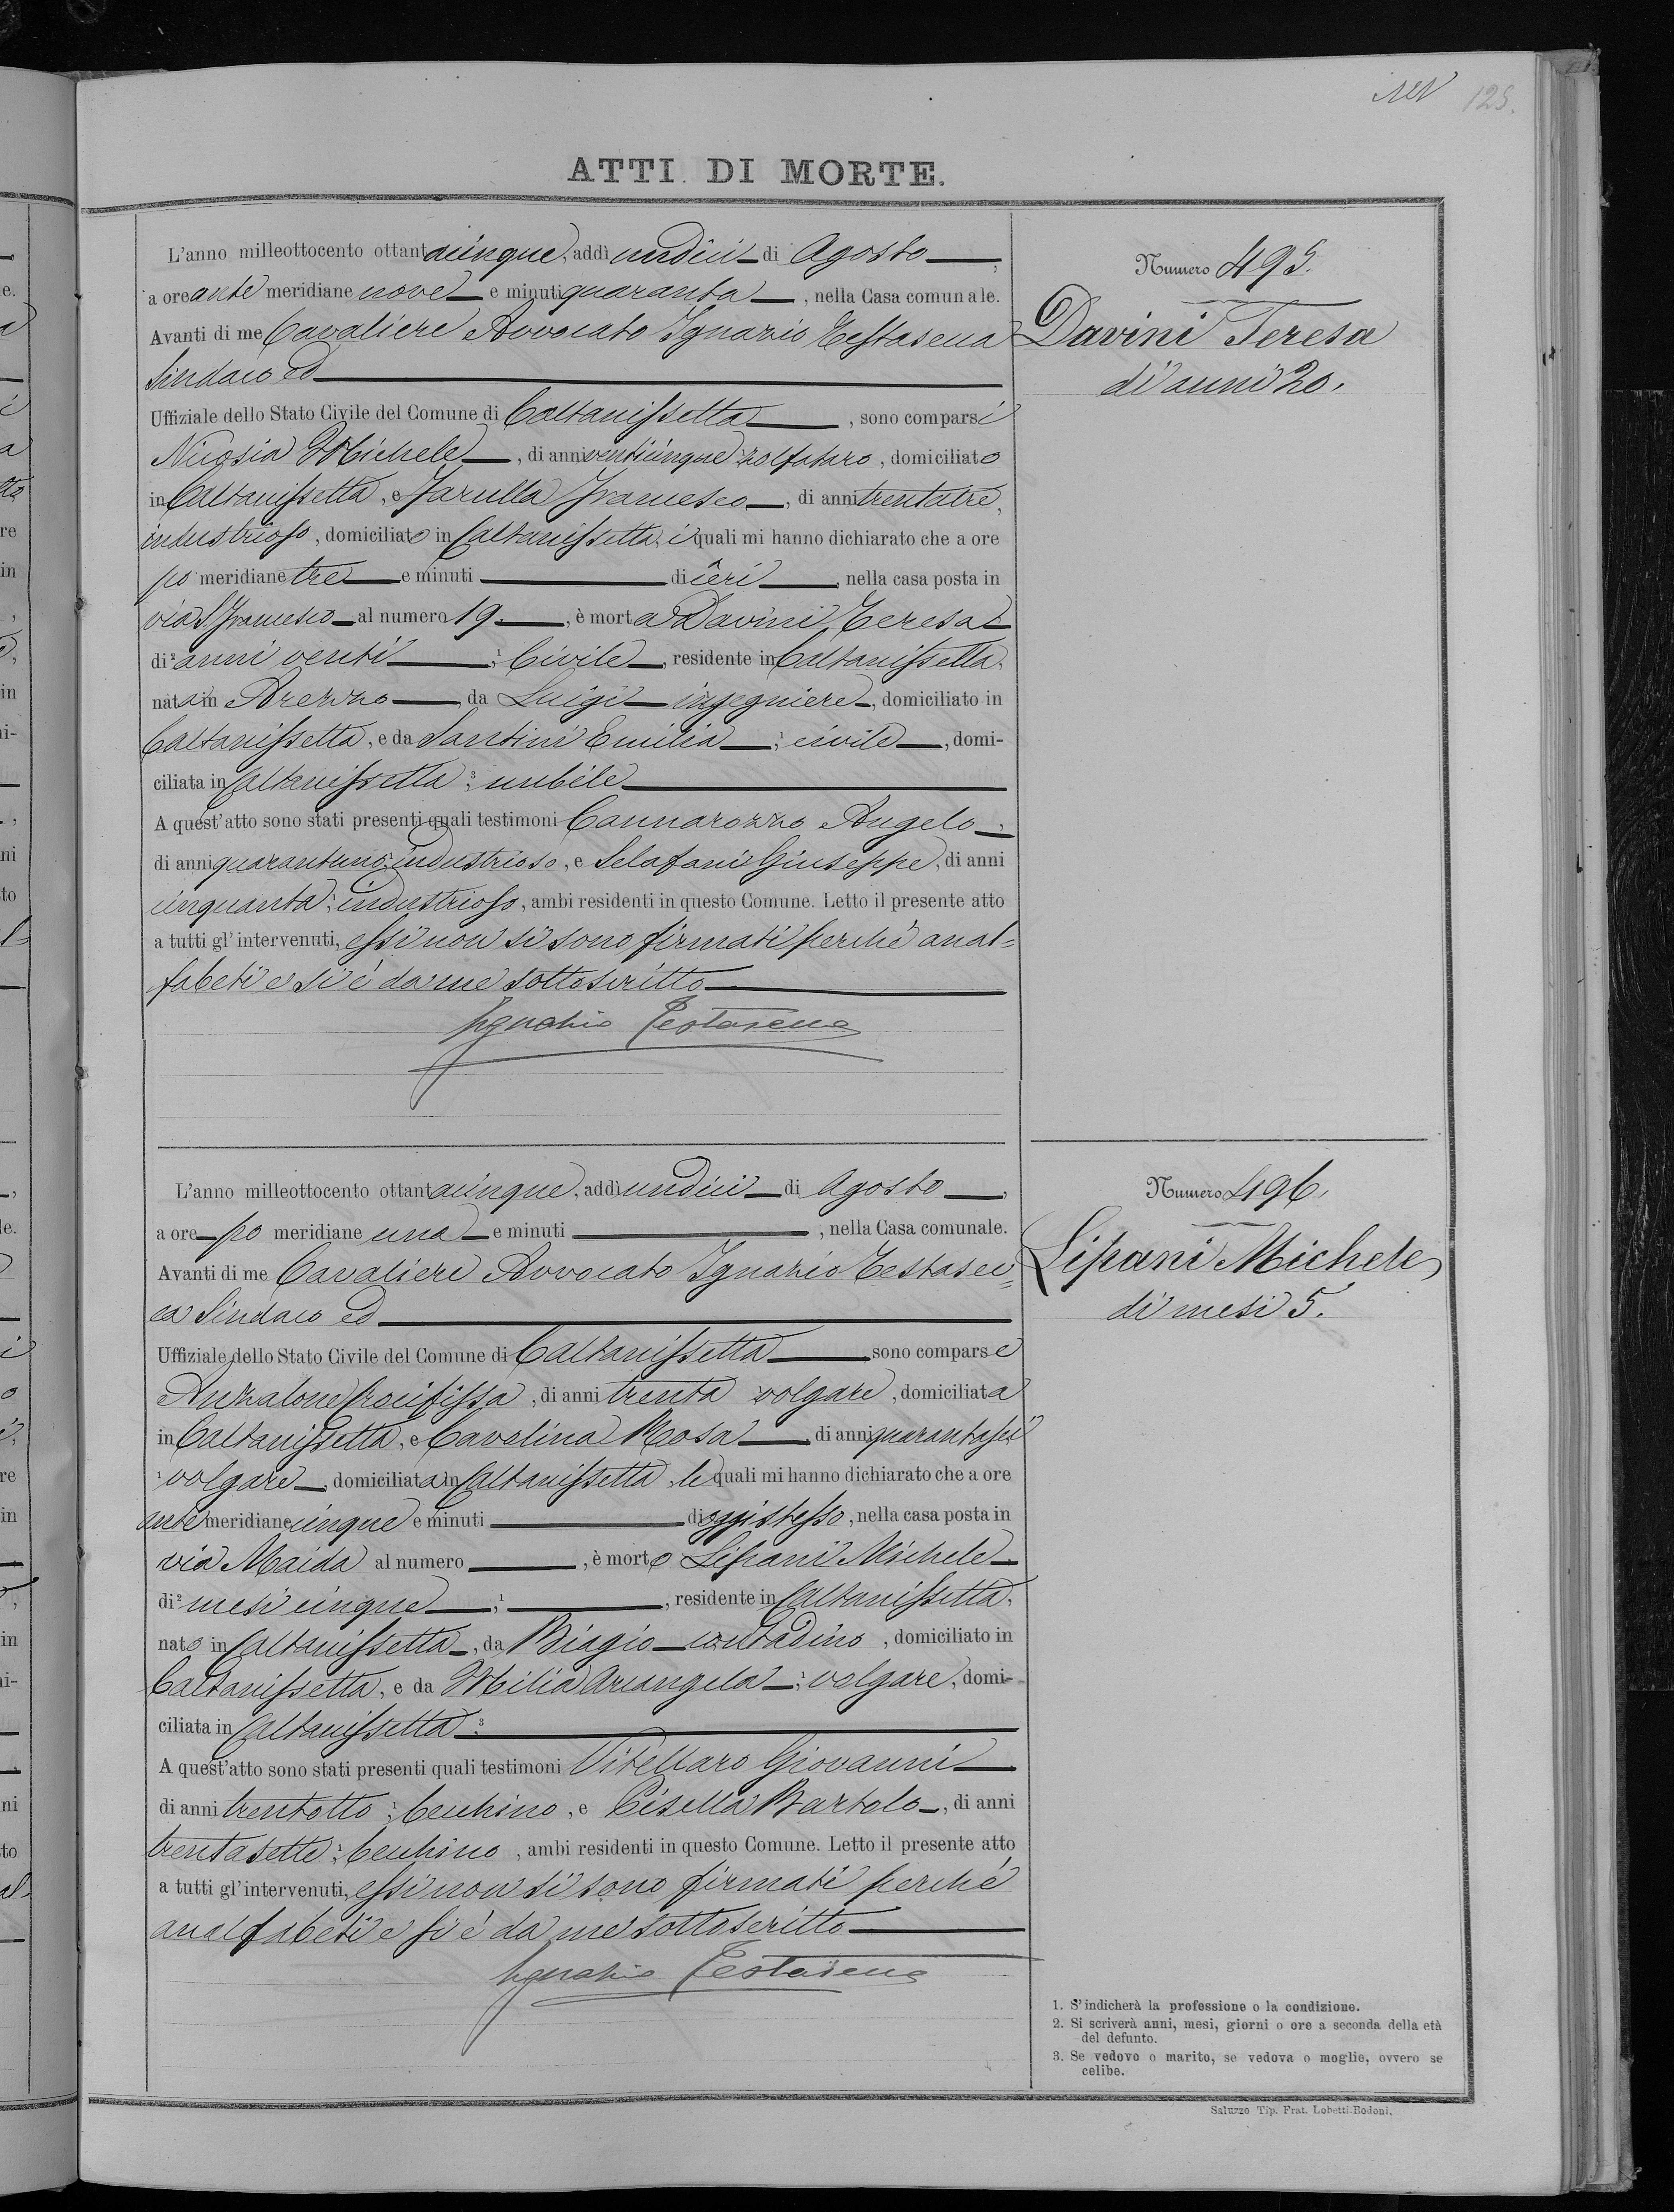 125.
ATTI DI MORTE.
L'anno milleottocento ottantacinque, addì undici di Agosto,
a ore ante meridiane nove e minuti quaranta, nella Casa comunale.
Avanti di me Cavaliere Avvocato Ignazio Testasecca
Sindaco ed
Uffiziale dello Stato Civile del Comune di Caltanissetta, sono comparsi
Nicosia Michele, di anni venticinque zolfataro, domiciliato
in Caltanissetta, e Jarulla Francesco, di anni trentatre,
industrioso, domiciliato in Caltanissetta, i quali mi hanno dichiarato che a ore
po meridiane tre e minuti di ieri, nella casa posta in
via S. Francesco al numero 19, è morta Davini Teresa
di² anni venti;¹ Civile, residente in Caltanissetta,
nata in Arezzo, da Luigi ingegniere, domiciliato in
Caltanissetta, e da Santini Emilia;¹ civile, domi-
ciliata in Caltanissetta;³ nubile
A quest'atto sono stati presenti quali testimoni Cannarozzo Angelo,
di anni quarantuno, industrioso, e Sclafani Giuseppe, di anni
cinquanta, industrioso, ambi residenti in questo Comune. Letto il presente atto
a tutti gl'intervenuti, essi non si sono firmati perché anal=
fabeti e si è da me sottoscritto
Ignazio Testasecca
Numero 495.
Davini Teresa
di anni 20.
L'anno milleottocento ottantacinque, addì undici di Agosto,
a ore po meridiane una e minuti, nella Casa comunale.
Avanti di me Cavaliere Avvocato Ignazio Testasec=
ca Sindaco ed
Uffiziale dello Stato Civile del Comune di Caltanissetta sono comparse
Anzalone Crocifissa, di anni trenta volgare, domiciliata
in Caltanissetta, e Cavalina Rosa, di anni quarantasei
volgare, domiciliata in Caltanissetta, le quali mi hanno dichiarato che a ore
ante meridiane cinque e minuti di oggi stesso, nella casa posta in
via Maida al numero, è morto Lipani Michele
di² mesi cinque;¹, residente in Caltanissetta,
nato in Caltanissetta, da Biagio contadino, domiciliato in
Caltanissetta, e da Milia Arcangela;¹ volgare, domi-
ciliata in Caltanissetta;³
A quest'atto sono stati presenti quali testimoni Vitellaro Giovanni
di anni trentotto;¹ becchino, e Pisella Bartolo, di anni
trentasette;¹ becchino, ambi residenti in questo Comune. Letto il presente atto
a tutti gl'intervenuti, essi non si sono firmati perché
analfabeti e si è da me sottoscritto
Ignazio Testasecca
Numero 496.
Lipani Michele
di mesi 5.
1. S'indicherà la professione o la condizione.
2. Si scriverà anni, mesi, giorni o ore a seconda della età
del defunto.
3. Se vedovo o marito, se vedova o moglie, ovvero se
celibe.
Saluzzo Tip. Frat. Lobetti-Bodoni.